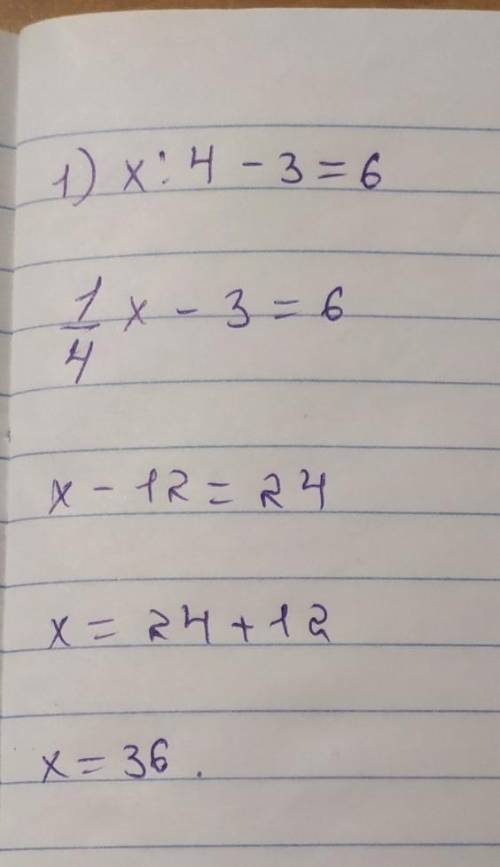 1) x : 4 - 3 = 6
1/4 x - 3 = 6
x - 12 = 24
x = 24 + 12
x = 36 .